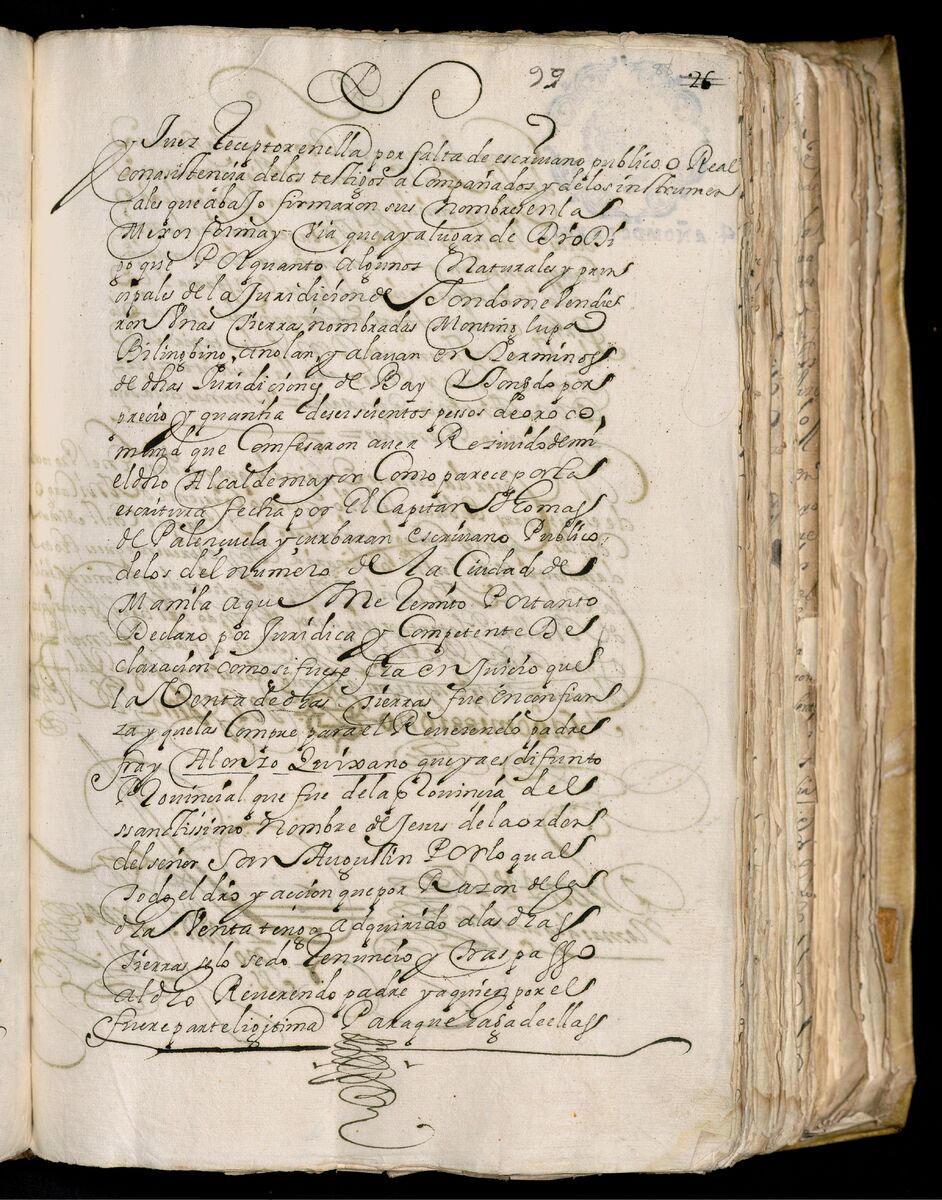 99
26
y Juez Receptor en ella por falta de escrivano publico o Real
con asistencia de los testigos aCompañados y de los instrumen
tales que abaJo firmaron sus Nombres en la
Mexor forma y Via que aya lugar de Dro Di
go que Por quanto algunos Naturales y prin
cipales de la Juridicion de Tondo me Vendie
ron Unas tierras nombradas
y alayan en terminos
de dhas Juridiciones de Bay y Tondo por
precio y quantia de seiscientos pessos de oro co
mun que Confesaron aver Reziuido de mi
el dho Alcalde mayor Como parece por la
escritura fecha por El Capitan Thomas
de Palençuela y curbaran escrivano Publico
de los del numero de la Ciudad de
Manila aque Me Remito Por tanto
Declaro por Juridica y Competente De
claracion como si fuese fha en Juicio que
la Venta de dhas tierras fue en confian
za y que las Compre para el Reverendo padre
fray Alonzo Quixano que ya es difunto
Provincial que fue de la Provincia del
ssanctissimo Nombre de Jesus de la orden
del señor San Augustin Por lo qual
todo el dro y accion que por Razon de la
dha Venta tengo adquirido a las dhas
tierras lo sedo Renuncio y traspasso
al dho Reverendo padre y a quien por el
fuere parte ligitima Para que haga de ellas